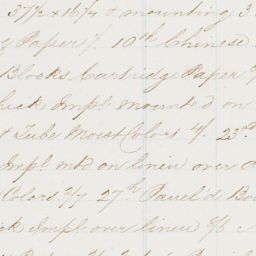 37½ x 16¼ & mounting 3
g Paper 1/. 10th Chinese
Blocks, Cartridge Paper
hick Impl. mounted on
t Tube Moist Colors 4/. 23rd
Impl. mtd on linen over
Colors 2/7 27th Panel'd Bo
ck Impl. over linen 6/6